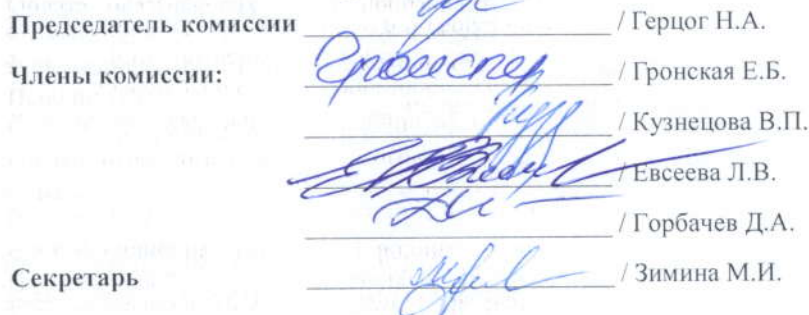 Председатель комиссии / Герцог Н.А.
Члены комиссии: / Гронская Е.Б.
/ Кузнецова В.П.
/ Евсеева Л.В.
/ Горбачев Д.А.
Секретарь / Зимина М.И.